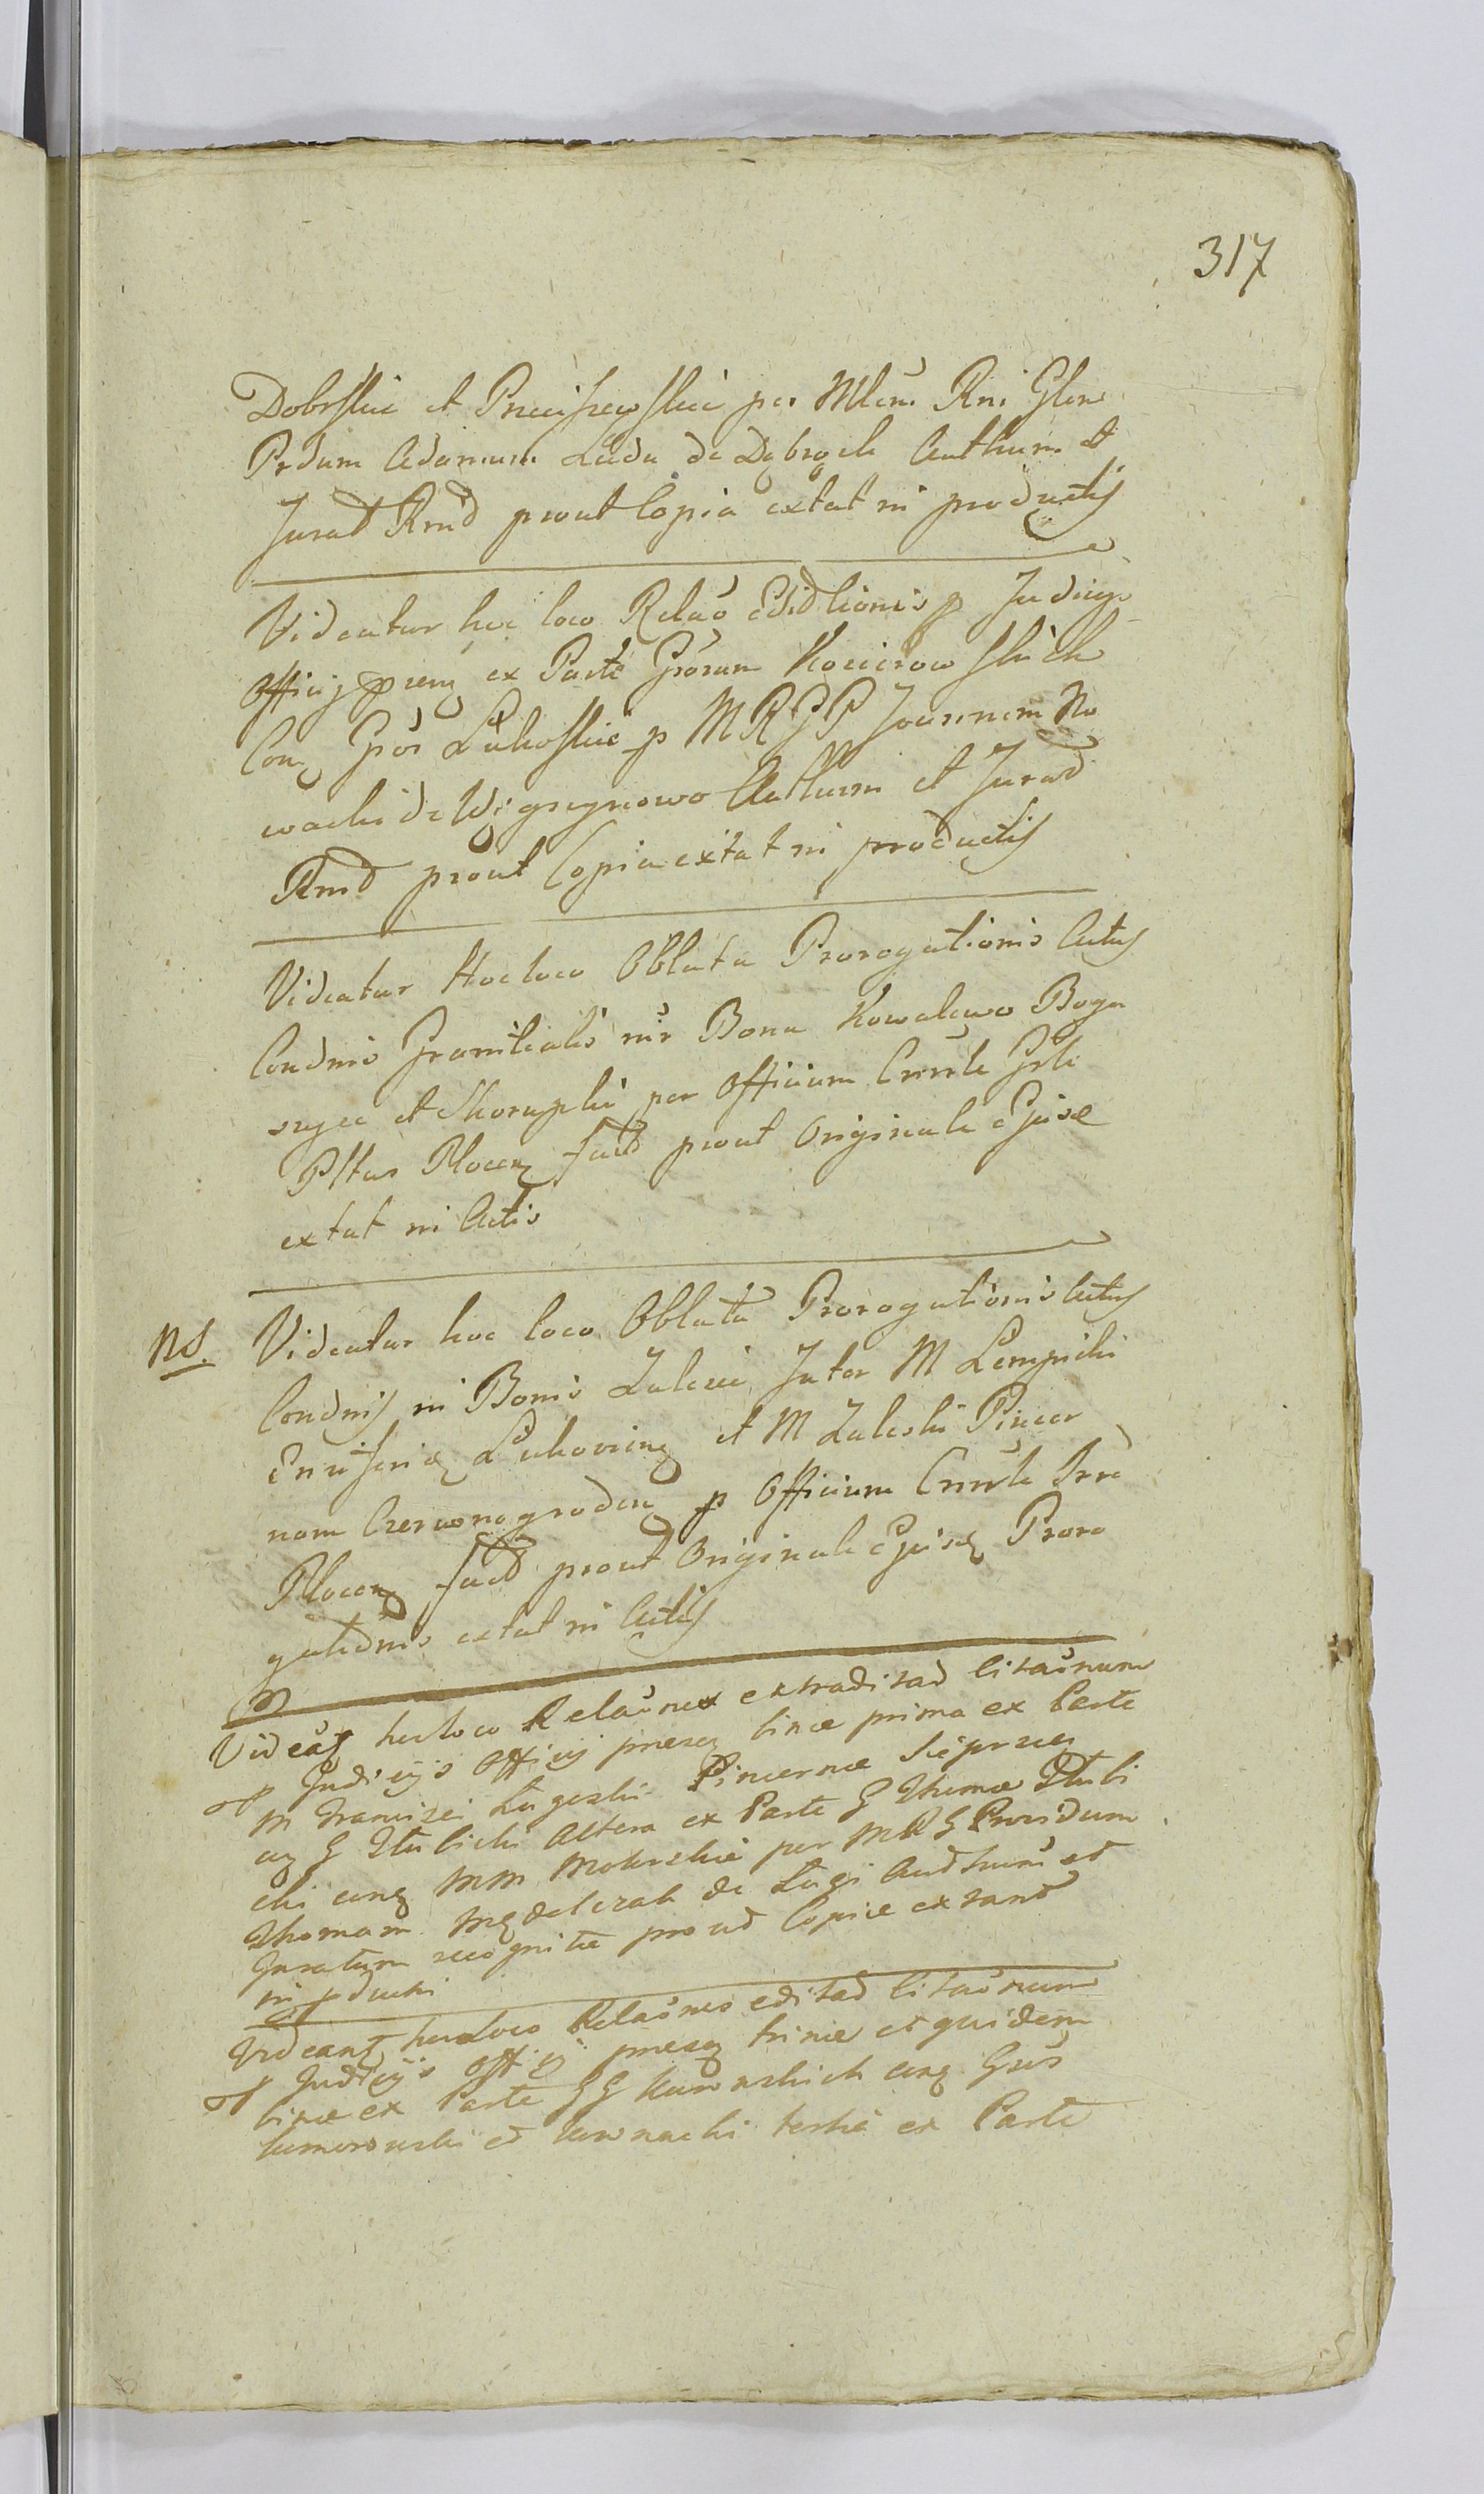 317
Dobrskie et per Mlem Rni Glen
Prdum Adamum Luda de Dąbrąck Authum et
Jurat Rnd prout Copia extat in productis
Videatur hoc loco Relao Edidtionis p Judicys
Officij prens ex Parte Grorum
Con Gros Lukoskie p M R G P Joannem No
wacki de Authum et Jurad
Rnd prout Copia extat in productis
Videatur Hoc loco Oblata Prorogationis Actus
Condnis Granitialis ntr Bona Kowalewo Bogu
szyce et Skorupki per Officium Cmrle Grle
Pltus Plocen fact prout Originale Ejusd
extat in Actis
NS. Videatur hoc loco Oblata Prorogationis Actus
Condnis in Bonis Zalesie Inter M Lempicki
Ensiferid Lukovien et M Zaleski Pincer
nam Czerwonogroden p Officium Cmrle Trre
Plocen fact prout Originale Ejusd Proro
gationis extat in Actis
Videat hocloco Relaones extradi tad Citaonum
p Judicijs Officij presen binae prima ex Parte
M Francisci Lugoski Pincernae Sieprcen
cu G Altera ex Parte G Thomae
cki cum MM Mokrskie per M R G Providum
Thomam de Ługi Authum et
Juratum recognitae prout Copiae extant
in pductis
Videant hocloco Relaones edi tad Citaonum
p Judicijs Officij presen trinae et quidem
binae ex Parte GG cum Gros
et Kownacki tertia ex Parte